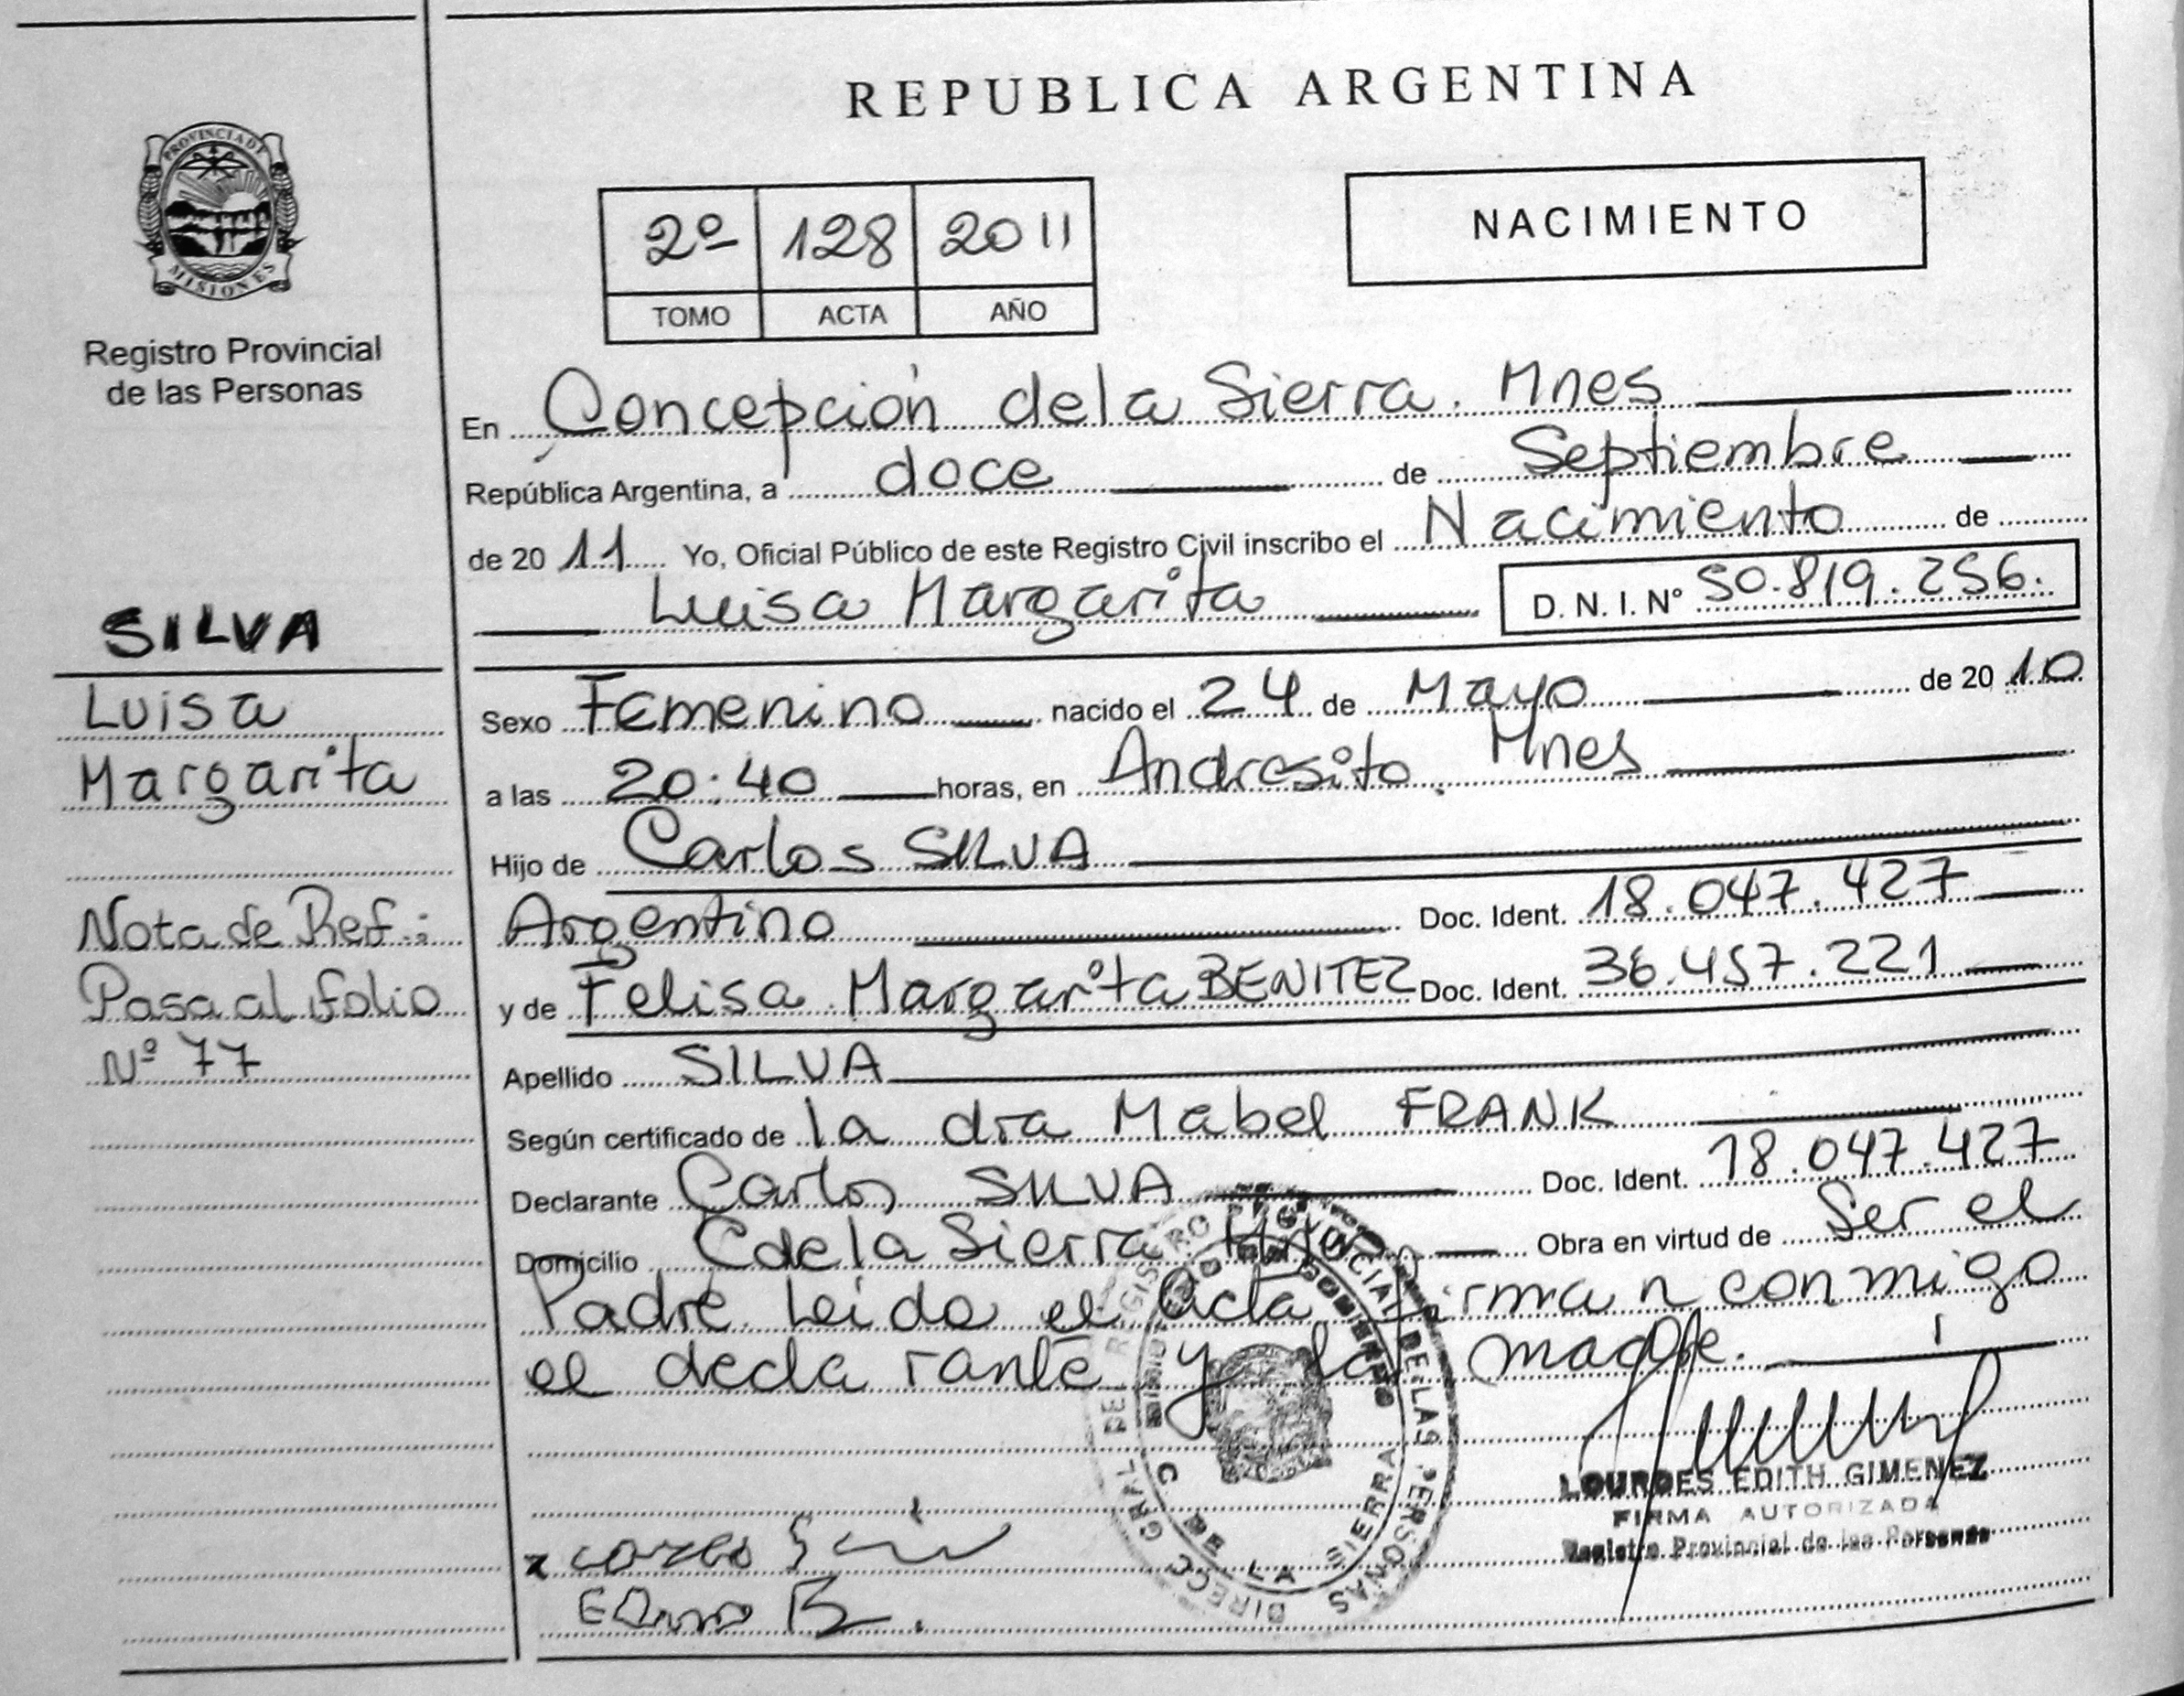 REPUBLICA ARGENTINA
PROVINCIA DE
MISIONES
Registro Provincial
de las Personas
2º 128 2011
TOMO ACTA AÑO
NACIMIENTO
En Concepción de la Sierra. Mnes
República Argentina, a doce de Septiembre
de 20 11 Yo, Oficial Público de este Registro Civil inscribo el Nacimiento de
Luisa Margarita D. N. I. Nº 50.819.256.
SILVA
Luisa
Margarita
Nota de Ref.:
Pasa al folio
Nº 77
Sexo Femenino nacido el 24 de Mayo de 20 10
a las 20:40 horas, en Andresito. Mnes
Hijo de Carlos SILVA
Argentino Doc. Ident. 18.047.427
y de Felisa Margarita BENITEZ Doc. Ident. 36.457.221
Apellido SILVA
Según certificado de la dra Mabel FRANK
Declarante Carlos SILVA Doc. Ident. 18.047.427
Domicilio C de la Sierra Mnes Obra en virtud de Ser el
Padre. Leido el acta, firman conmigo
el declarante y la madre.
DIRECC GRAL DEL REGISTRO PROVINCIAL DE LAS PERSONAS
C DE LA SIERRA
LOURDES EDITH GIMENEZ
FIRMA AUTORIZADA
Registro Provincial de las Personas
x